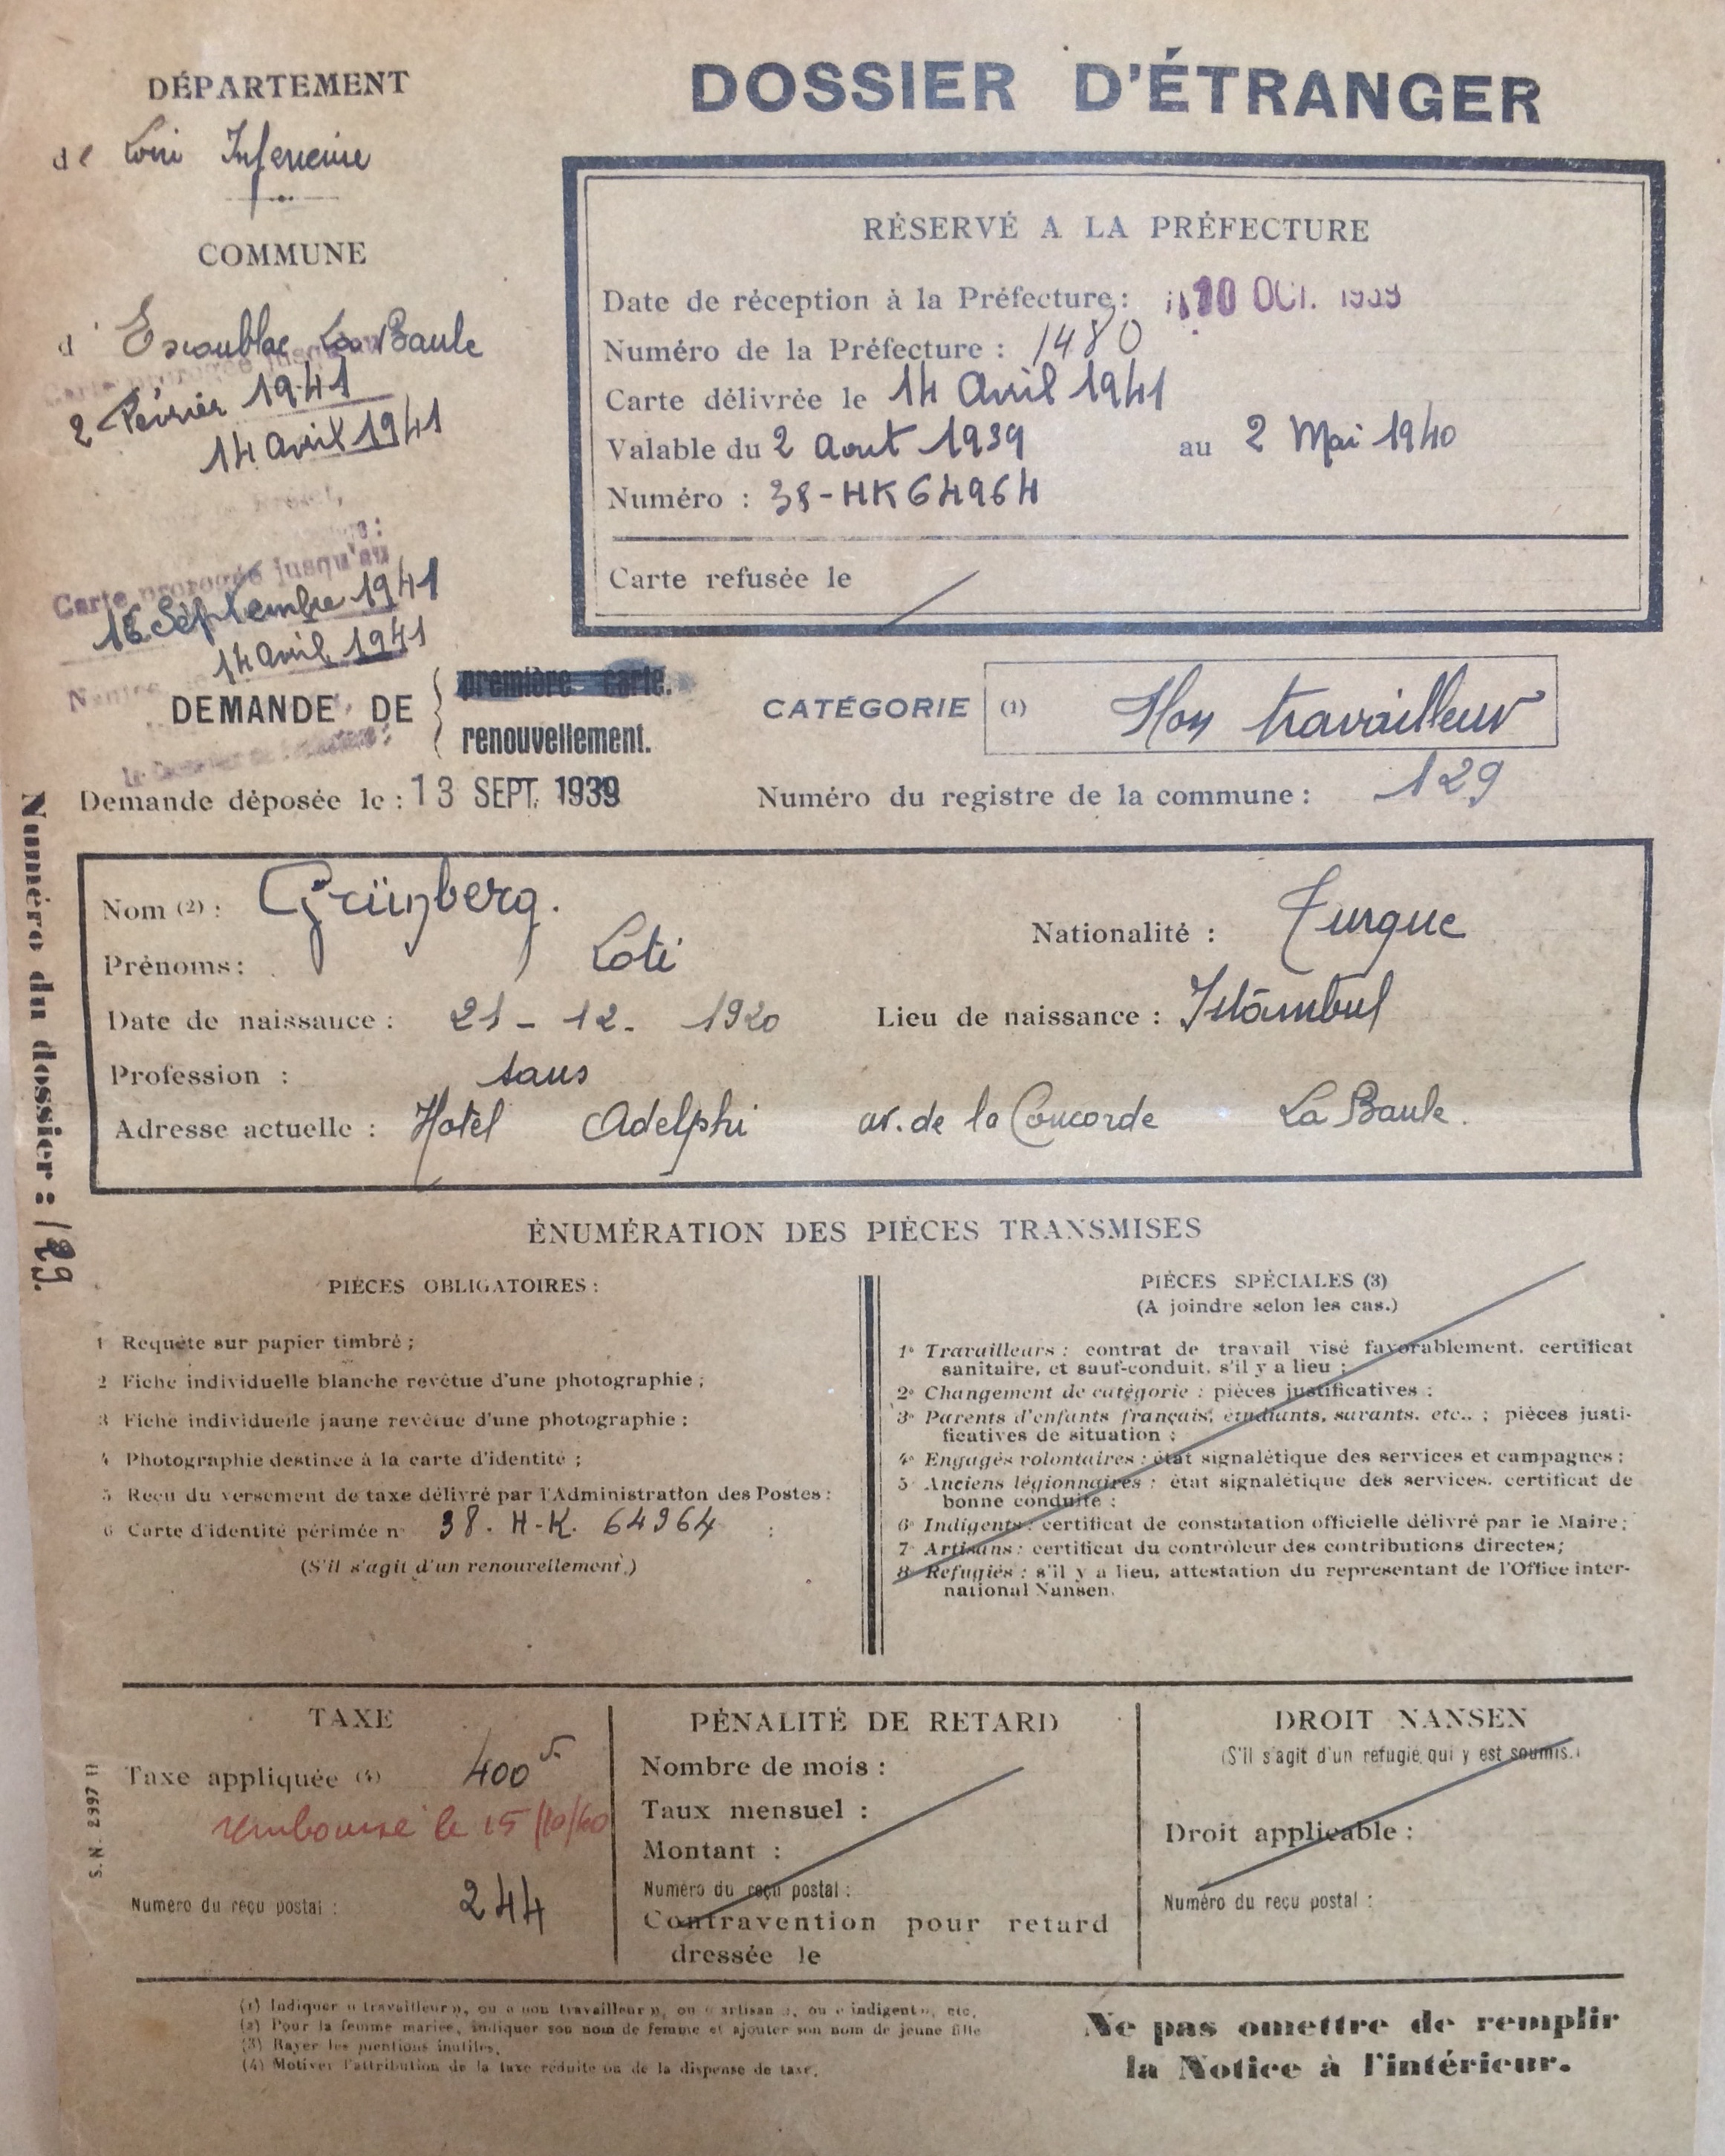 DÉPARTEMENT
de Loire Inférieure
COMMUNE
d' Escoublac La Baule
Carte prorogée jusqu'au
2 Février 1941
14 avril 1941
Carte prorogée jusqu'au
16 Septembre 1941
14 avril 1941
DOSSIER D'ÉTRANGER
RÉSERVÉ A LA PRÉFECTURE
Date de réception à la Préfecture : 10 OCT. 1939
Numéro de la Préfecture : 1480
Carte délivrée le 14 Avril 1941
Valable du 2 Aout 1939 au 2 Mai 1940
Numéro : 38-HK64964
Carte refusée le
DEMANDE DE
première carte.
renouvellement.
CATÉGORIE (1) Non travailleur
Demande déposée le : 13 SEPT. 1939
Numéro du registre de la commune : 129
Numéro du dossier : 129.
Nom (2) : Grünberg.
Nationalité : Turque
Prénoms : Loti
Date de naissance : 21-12-1920
Lieu de naissance : Istambul
Profession : sans
Adresse actuelle : Hotel Adelphi av. de la Concorde La Baule.
ÉNUMÉRATION DES PIÈCES TRANSMISES
PIÈCES OBLIGATOIRES :
1 Requête sur papier timbré ;
2 Fiche individuelle blanche revêtue d'une photographie ;
3 Fiche individuelle jaune revêtue d'une photographie ;
4 Photographie destinée à la carte d'identité ;
5 Reçu du versement de taxe délivré par l'Administration des Postes :
6 Carte d'identité périmée n° 38. H-K. 64964 ;
(S'il s'agit d'un renouvellement.)
PIÈCES SPÉCIALES (3)
(A joindre selon les cas.)
1° Travailleurs : contrat de travail visé favorablement, certificat
sanitaire, et sauf-conduit, s'il y a lieu ;
2° Changement de catégorie : pièces justificatives ;
3° Parents d'enfants français, étudiants, savants, etc.. ; pièces justi-
ficatives de situation ;
4° Engagés volontaires : état signalétique des services et campagnes ;
5° Anciens légionnaires : état signalétique des services, certificat de
bonne conduite ;
6° Indigents : certificat de constatation officielle délivré par le Maire ;
7° Artisans : certificat du contrôleur des contributions directes ;
8° Réfugiés : s'il y a lieu, attestation du représentant de l'Office inter-
national Nansen.
TAXE
Taxe appliquée (4) 400
remboursé le 15/10/40
Numéro du reçu postal : 244
S.N. 2997 II
PÉNALITÉ DE RETARD
Nombre de mois :
Taux mensuel :
Montant :
Numéro du reçu postal :
Contravention pour retard
dressée le
DROIT NANSEN
(S'il s'agit d'un réfugié qui y est soumis.)
Droit applicable :
Numéro du reçu postal :
(1) Indiquer « travailleur », ou « non travailleur », ou « artisan », ou « indigent », etc.
(2) Pour la femme mariée, indiquer son nom de femme et ajouter son nom de jeune fille
(3) Rayer les mentions inutiles.
(4) Motiver l'attribution de la taxe réduite ou de la dispense de taxe.
Ne pas omettre de remplir
la Notice à l'intérieur.